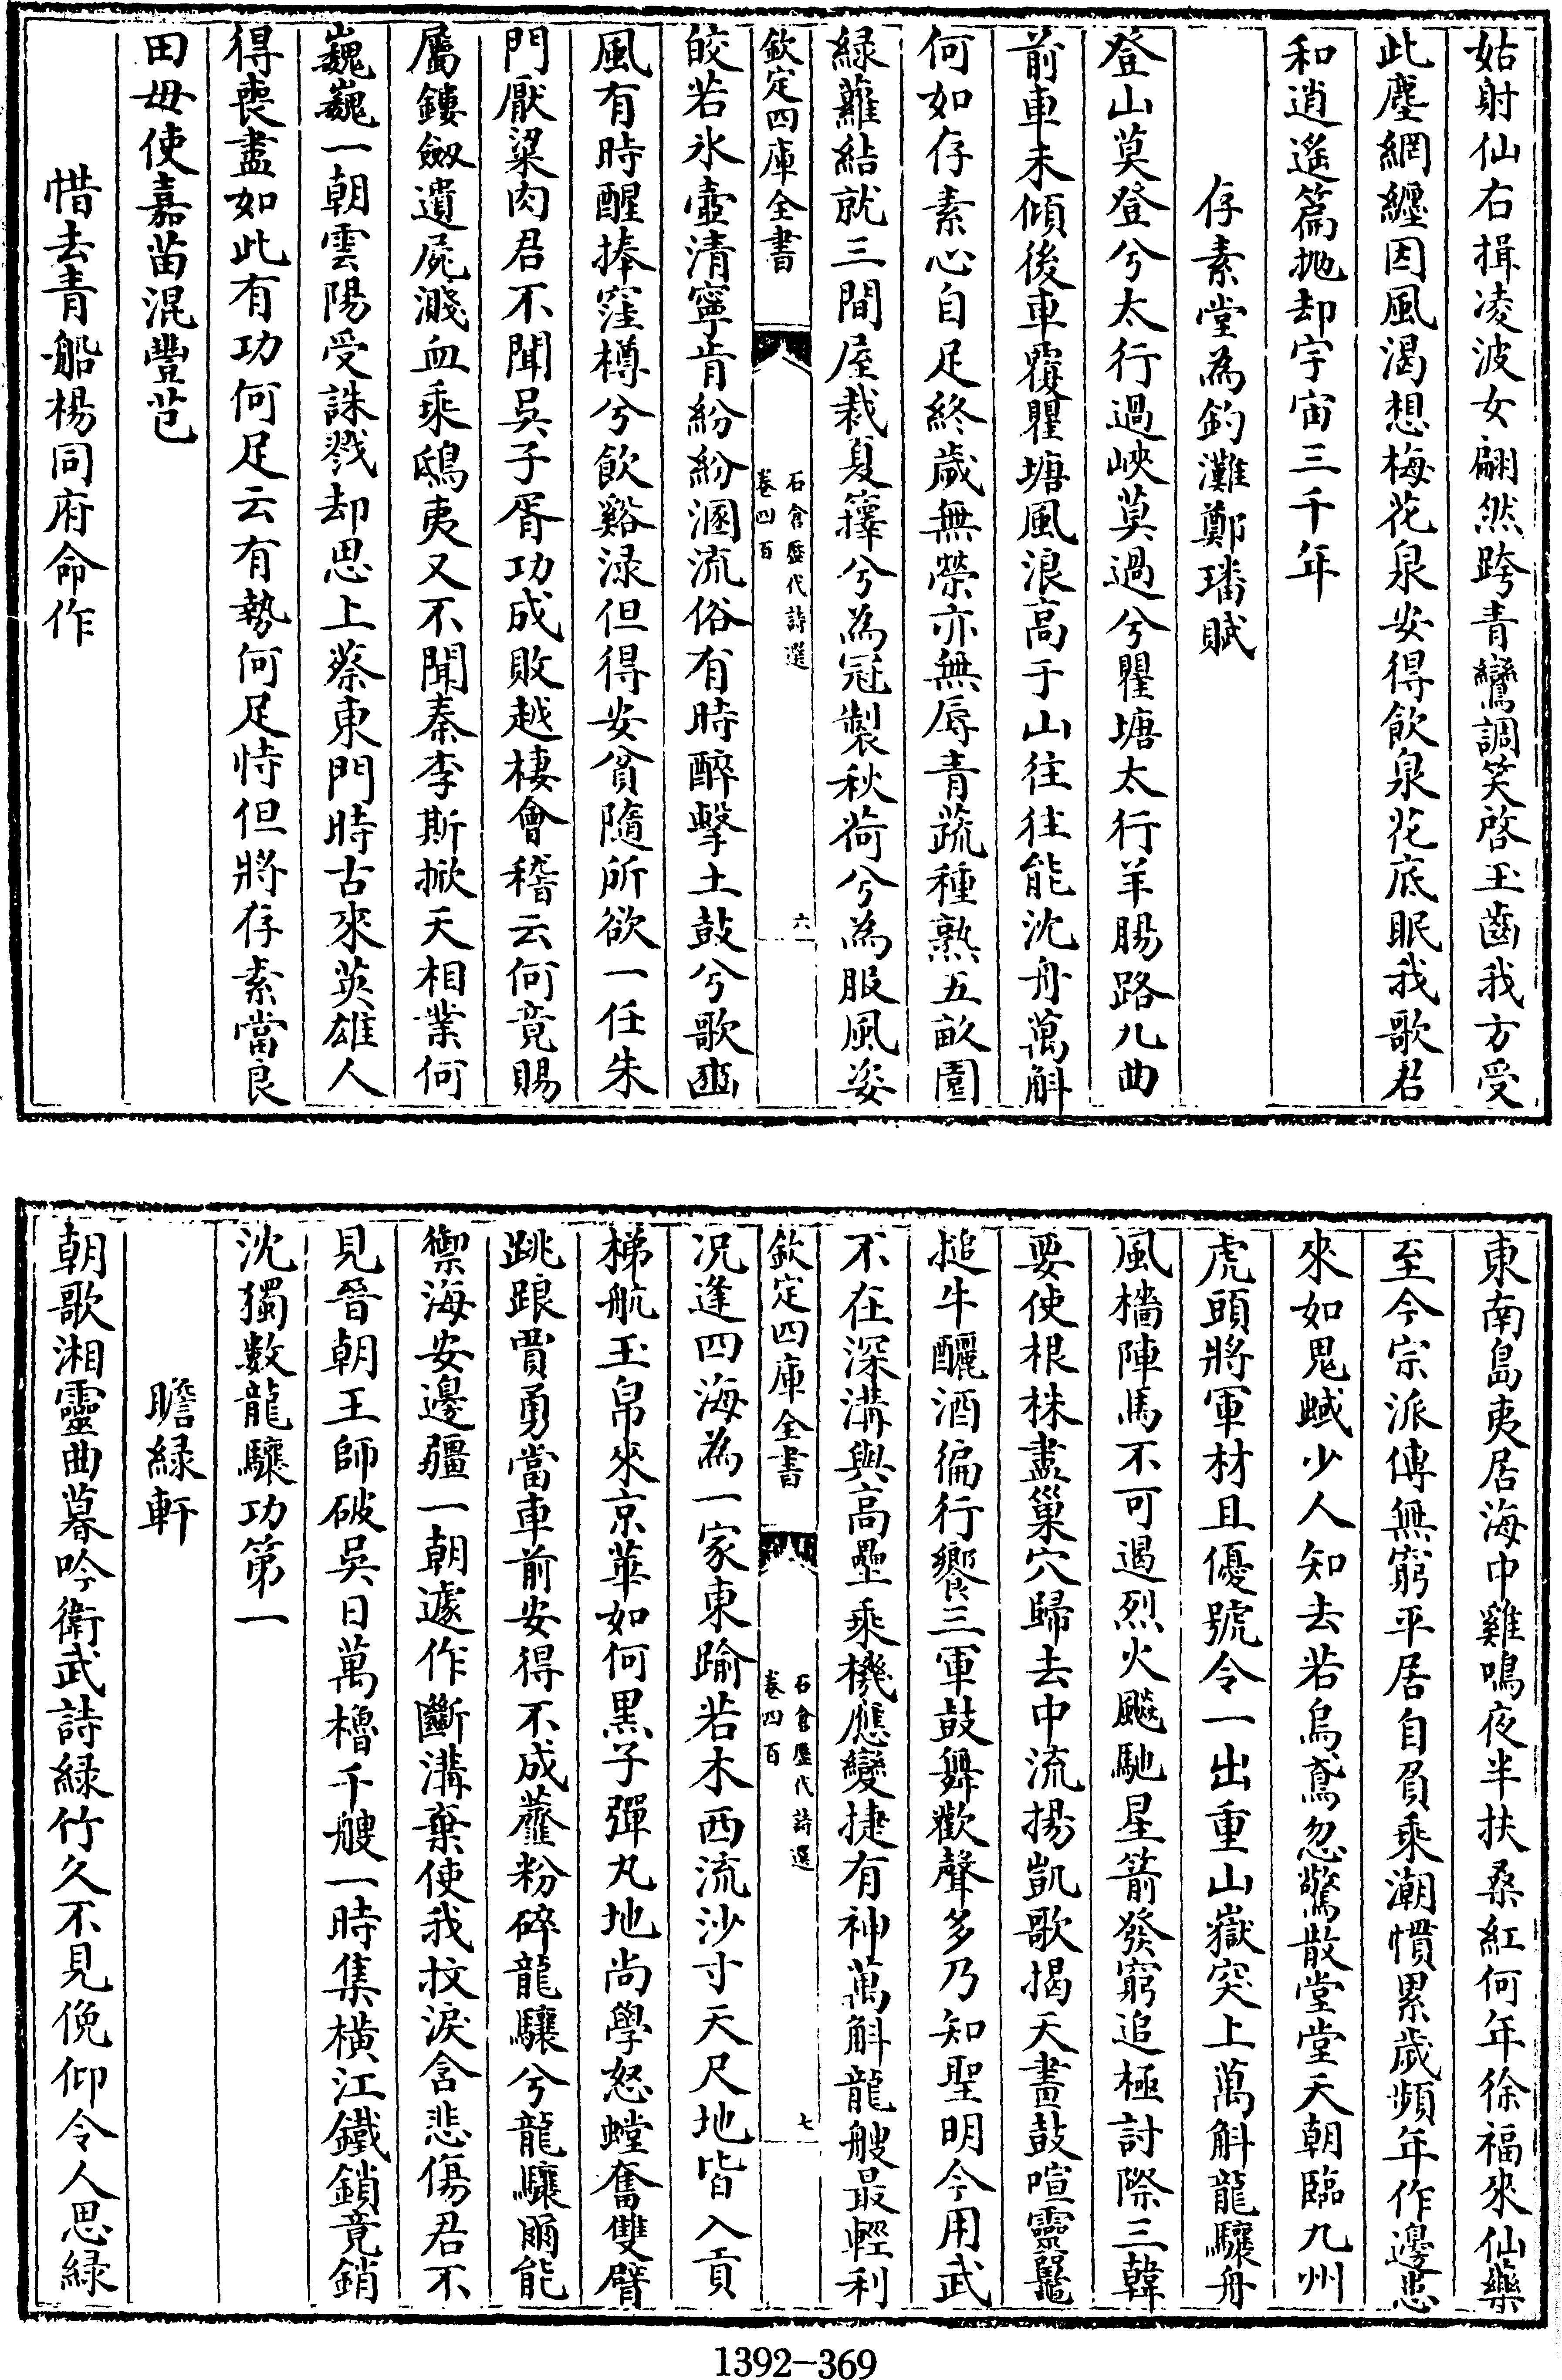 姑射仙右揖凌波女翩然跨青鸞調笑啓玉齒我方受
此塵網纏因風渴想梅花泉安得飲泉花底眠我歌君
和逍遙篇抛却宇宙三千年
存素堂為釣灘鄭璠賦
登山莫登兮太行過峽莫過兮瞿塘太行羊腸路九曲
前車未傾後車覆瞿塘風浪高于山往往能沈舟萬斛
何如存素心自足終歲無榮亦無辱青蔬種熟五畝園
緑蘿結就三間屋裁夏籜兮為冠製秋荷兮為服風姿
欽定四庫全書
石倉歷代詩選
卷四百
六
皎若氷壺清寧肯紛紛溷流俗有時醉擊土鼓兮歌豳
風有時醒捧窪樽兮飲谿渌但得安貧隨所欲一任朱
門厭粱肉君不聞吳子胥功成敗越棲會稽云何竟賜
屬鏤劔遺屍濺血乘鴟夷又不聞秦李斯掀天相業何
巍巍一朝雲陽受誅戮却思上蔡東門時古來英雄人
得喪盡如此有功何足云有勢何足恃但將存素當良
田毋使嘉苗混豐芑
惜去青船楊同府命作
東南島夷居海中雞鳴夜半扶桑紅何年徐福來仙藥
至今宗派傳無窮平居自負乘潮慣累歲頻年作邊患
來如鬼蜮少人知去若烏鳶忽驚散堂堂天朝臨九州
虎頭將軍材且優號令一出重山嶽突上萬斛龍驤舟
風檣陣馬不可遏烈火飈馳星箭發窮追極討際三韓
要使根株盡巢穴歸去中流揚凱歌揭天畫鼓喧靈鼉
搥牛釃酒徧行饗三軍鼓舞歡聲多乃知聖明今用武
不在深溝與高壘乘機應變捷有神萬斛龍艘最輕利
欽定四庫全書
石倉歷代詩選
卷四百
七
况逢四海為一家東踰若木西流沙寸天尺地皆入貢
梯航玉帛來京華如何黒子彈丸地尚學怒螳奮雙臂
跳踉賈勇當車前安得不成虀粉碎龍驤兮龍驤爾能
禦海安邊疆一朝遽作斷溝棄使我抆淚含悲傷君不
見晉朝王師破吳日萬櫓千艘一時集橫江鐵鎖竟銷
沈獨數龍驤功第一
瞻緑軒
朝歌湘靈曲暮吟衛武詩緑竹久不見俛仰令人思緑
1392-369